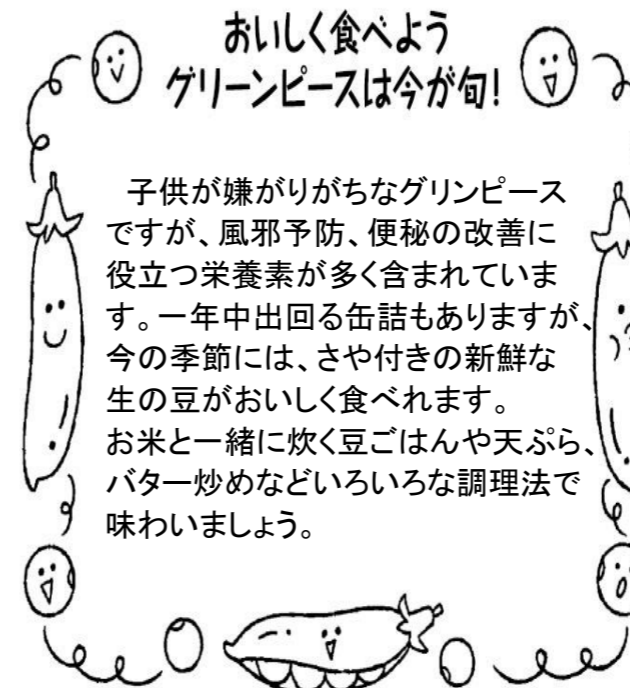 おいしく食べよう
グリーンピースは今が旬!
子供が嫌がりがちなグリンピース
ですが、風邪予防、便秘の改善に
役立つ栄養素が多く含まれていま
す。一年中出回る缶詰もありますが、
今の季節には、さや付きの新鮮な
生の豆がおいしく食べれます。
お米と一緒に炊く豆ごはんや天ぷら、
バター炒めなどいろいろな調理法で
味わいましょう。